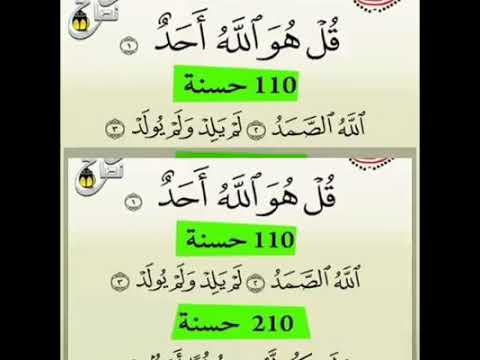 قُلْ هُوَ ٱللَّهُ أَحَدٌ ١
110 حسنة
ٱللَّهُ ٱلصَّمَدُ ٢ لَمْ يَلِدْ وَلَمْ يُولَدْ ٣
قُلْ هُوَ ٱللَّهُ أَحَدٌ ١
110 حسنة
ٱللَّهُ ٱلصَّمَدُ ٢ لَمْ يَلِدْ وَلَمْ يُولَدْ ٣
210 حسنة